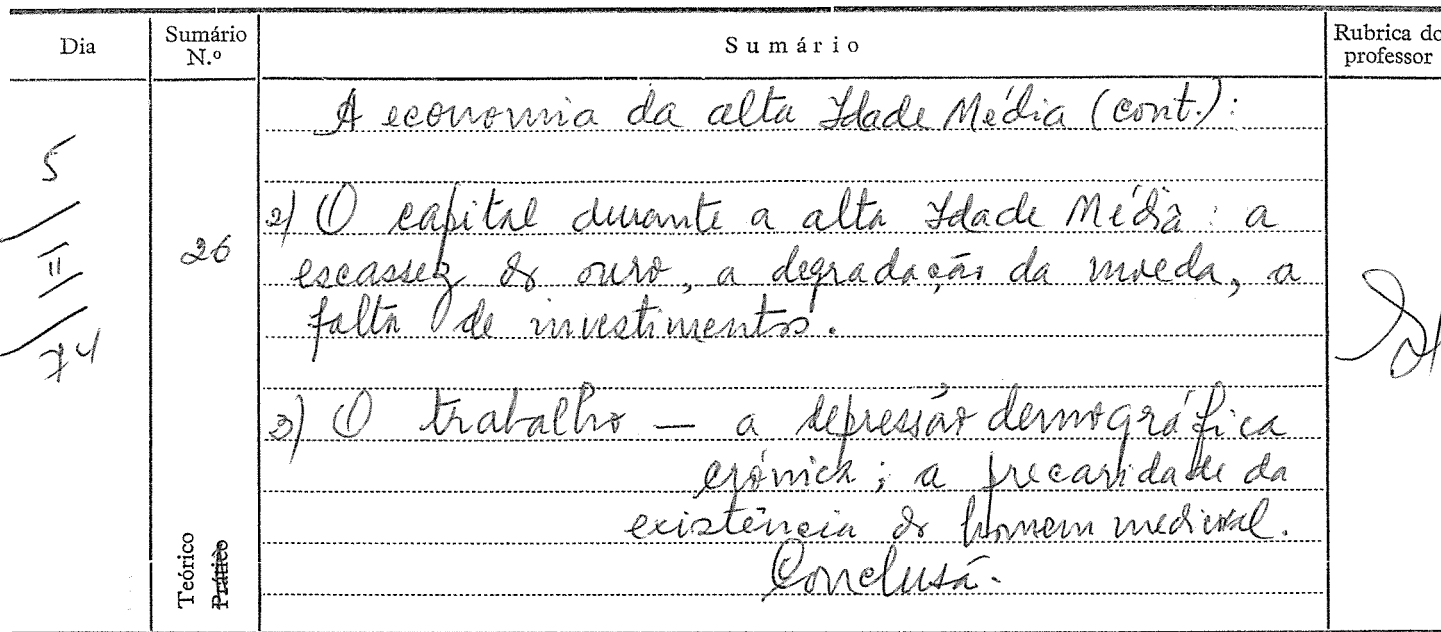 Dia
Sumário
N.º
Sumário
Rubrica do
professor
5
II
74
26
Teórico
Prático
A economia da alta Idade Média (cont.):
2) O capital durante a alta Idade Média: a
escassez do ouro, a degradação da moeda, a
falta de investimentos.
3) O trabalho — a depressão demográfica
crónica; a precaridade da
existência do homem medieval.
Conclusão.